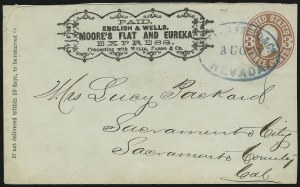 PAID,
ENGLISH & WELLS,
MOORE'S FLAT AND EUREKA
EXPRESS.
Connecting with Wells, Fargo & Co.
AUG
NEVADA
UNITED STATES
If not delivered within 10 days, to be returned to
Mrs Lucy Packard
Sacramento City
Sacramento County
Cal